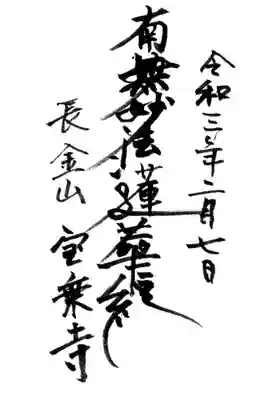 令和三年二月七日
南無妙法蓮華経
長金山
宝乗寺